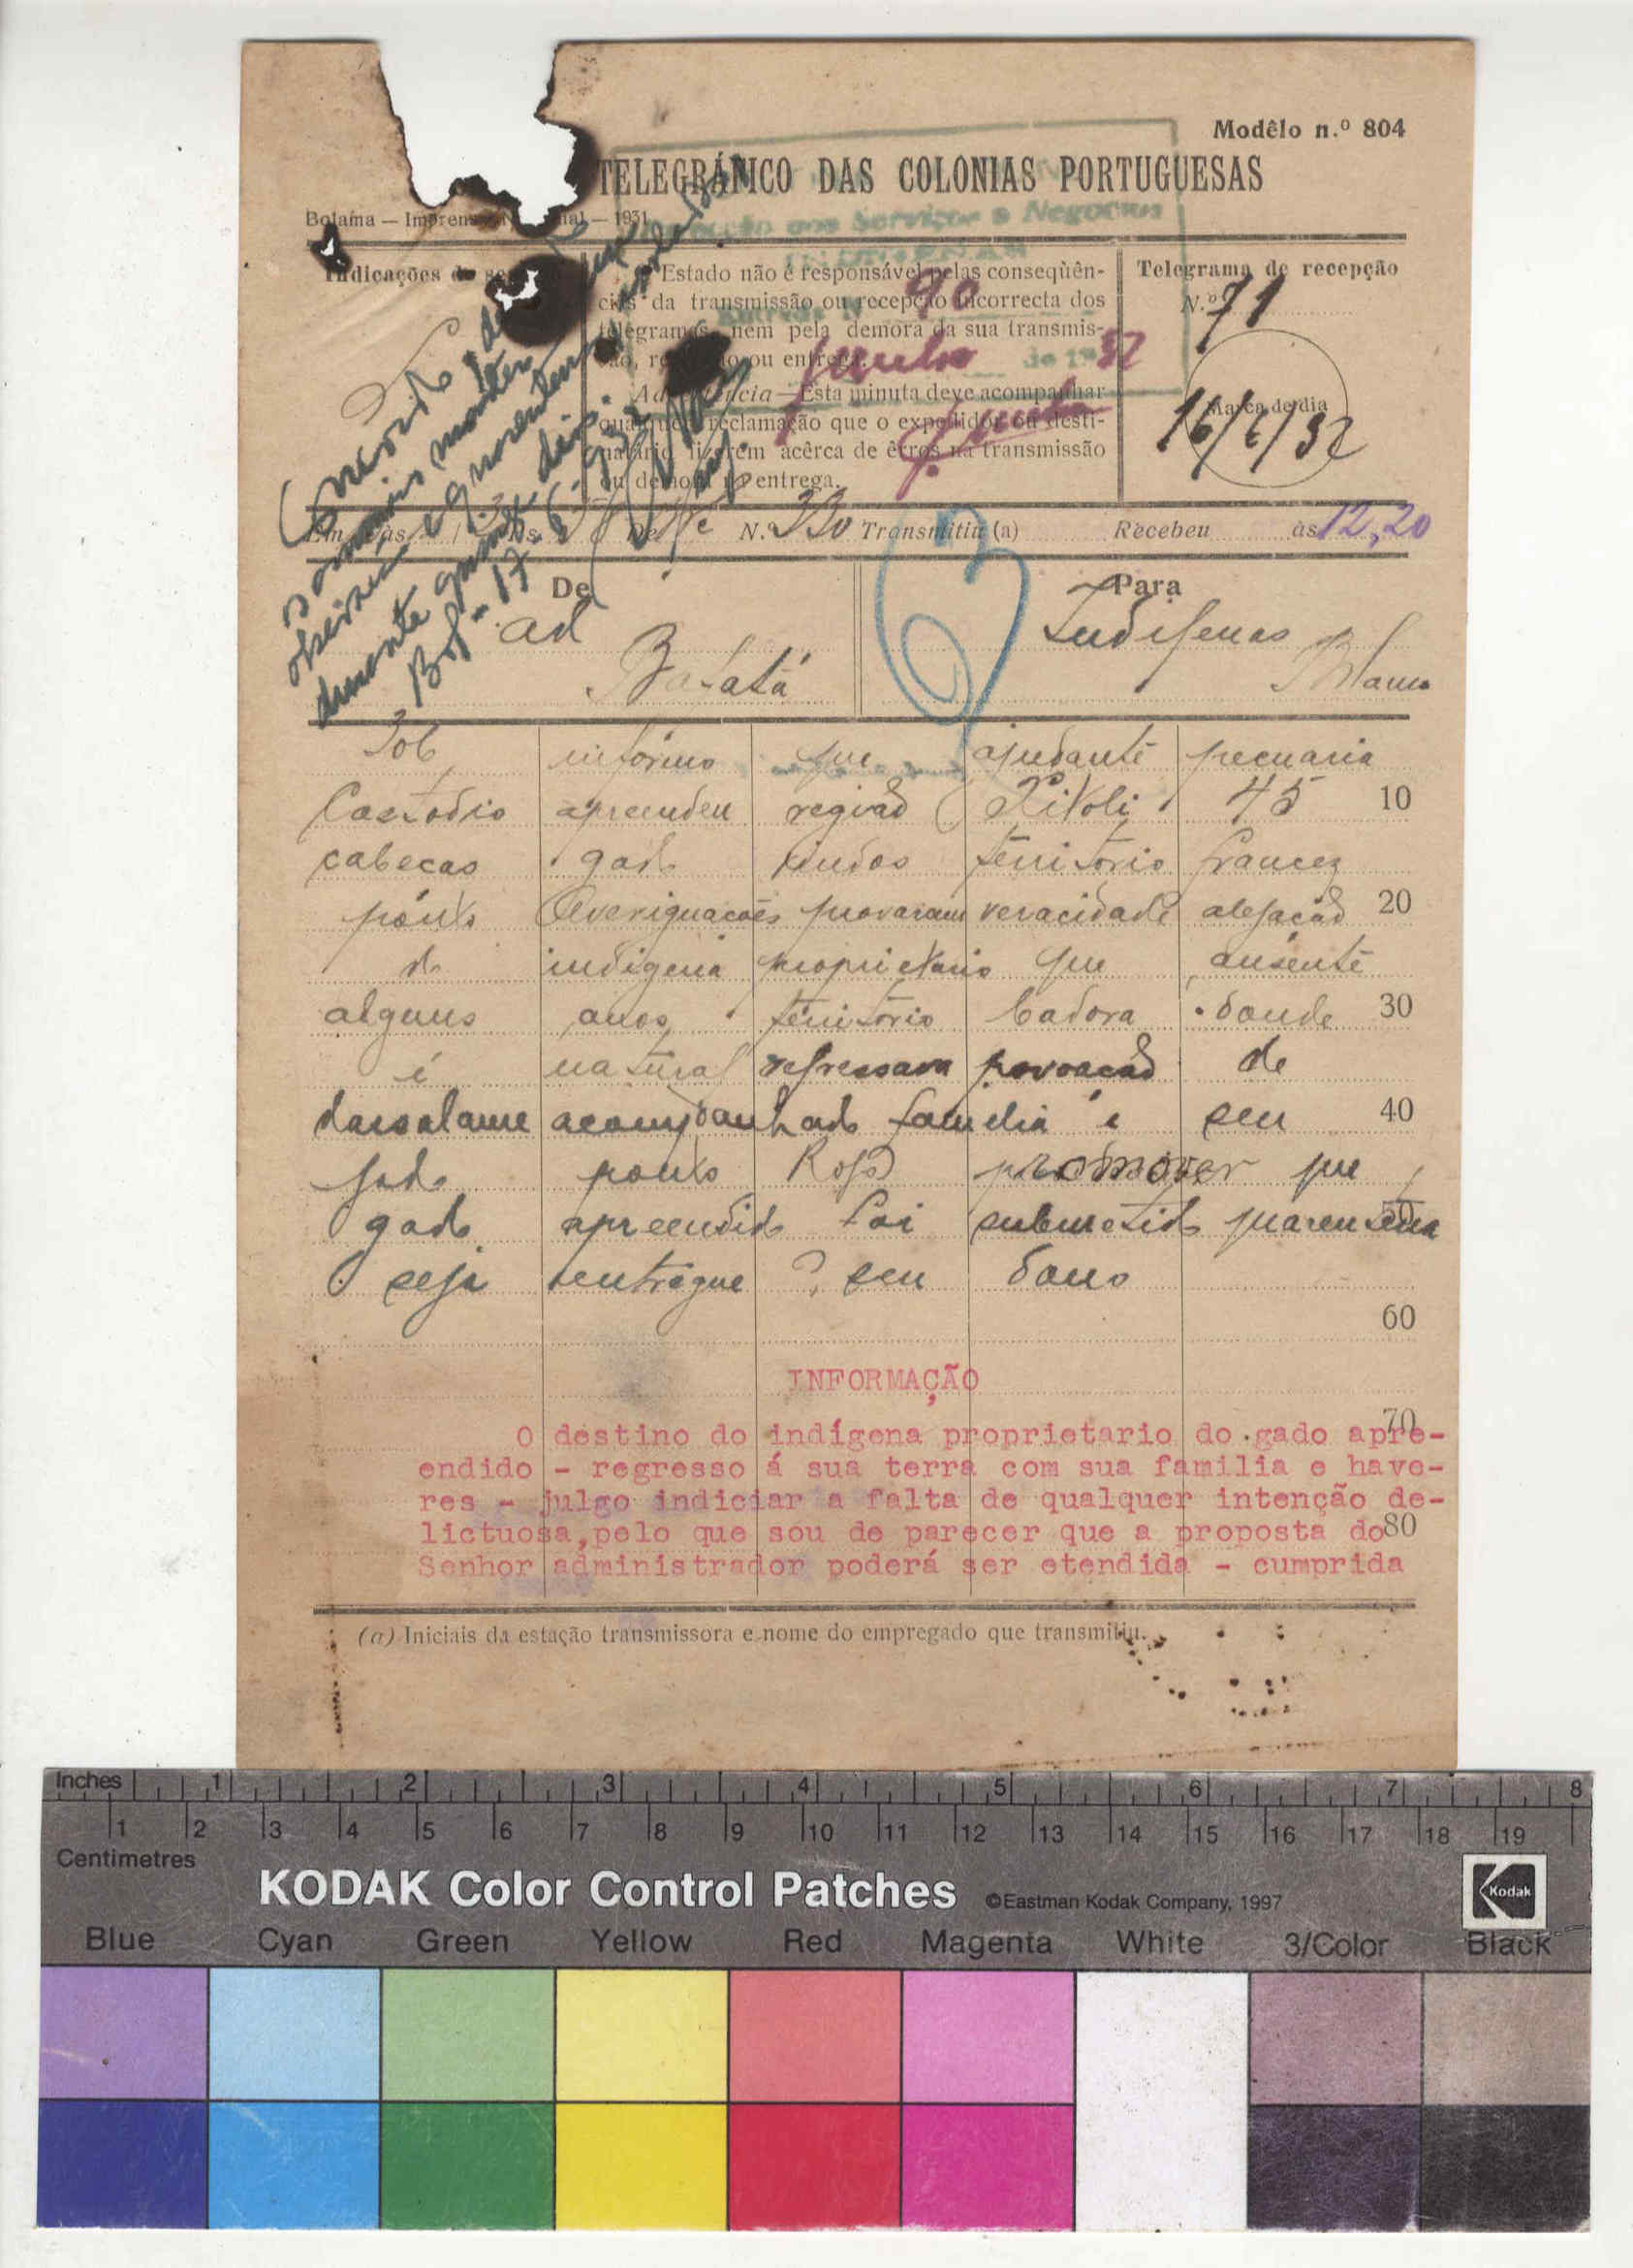 Modêlo n.º 804
TELEGRÁFICO DAS COLONIAS PORTUGUESAS
Bolama — Imprensa Nacional — 1931
Direcção dos Serviços e Negocios
INDIGENAS
Indicações de
O Estado não é responsável pelas conseqùên-
cias da transmissão ou recepção incorrecta dos
telegramas, nem pela demora da sua transmis-
são, recepção ou entrega.
Advertência — Esta minuta deve acompanhar
qualquer reclamação que o expedidor ou desti-
natário fizerem acêrca de êrros na transmissão
ou demora na entrega.
90
junho de 1932
Telegrama de recepção
N.º 71
Marca de dia
16/6/32
Concordo,
mais
observancia quarentena
durante quinze dias.
Bol- 17-6-932
Em às De N.º 330 Transmitiu (a) Recebeu às 12,20
De
ad
Bafatá
Para
Indigenas
Blama
306 informo que ajudante pecuaria
Custodio apreendeu região Pitoli 45 10
cabecas gado vindos territorio francez
ponto Averiguações provaram veracidade alegação 20
do indigena proprietario que ausente
alguns anos territorio Badora donde 30
é natural regressava povoacão de
darsalame acompanhado familia e seu 40
gado ponto Rogo promover que
gado apreendido foi submetido quarentena 50
seja entregue ? seu dono
60
INFORMAÇÃO
70
O destino do indígena proprietario do gado apre-
endido - regresso á sua terra com sua familia e have-
res - julgo indiciar a falta de qualquer intenção de-
lictuosa,pelo que sou de parecer que a proposta do 80
Senhor administrador poderá ser etendida - cumprida
(a) Iniciais da estação transmissora e nome do empregado que transmitiu.
Inches 1 2 3 4 5 6 7 8
1 2 3 4 5 6 7 8 9 10 11 12 13 14 15 16 17 18 19
Centimetres
KODAK Color Control Patches ©Eastman Kodak Company, 1997 Kodak
Blue Cyan Green Yellow Red Magenta White 3/Color Black